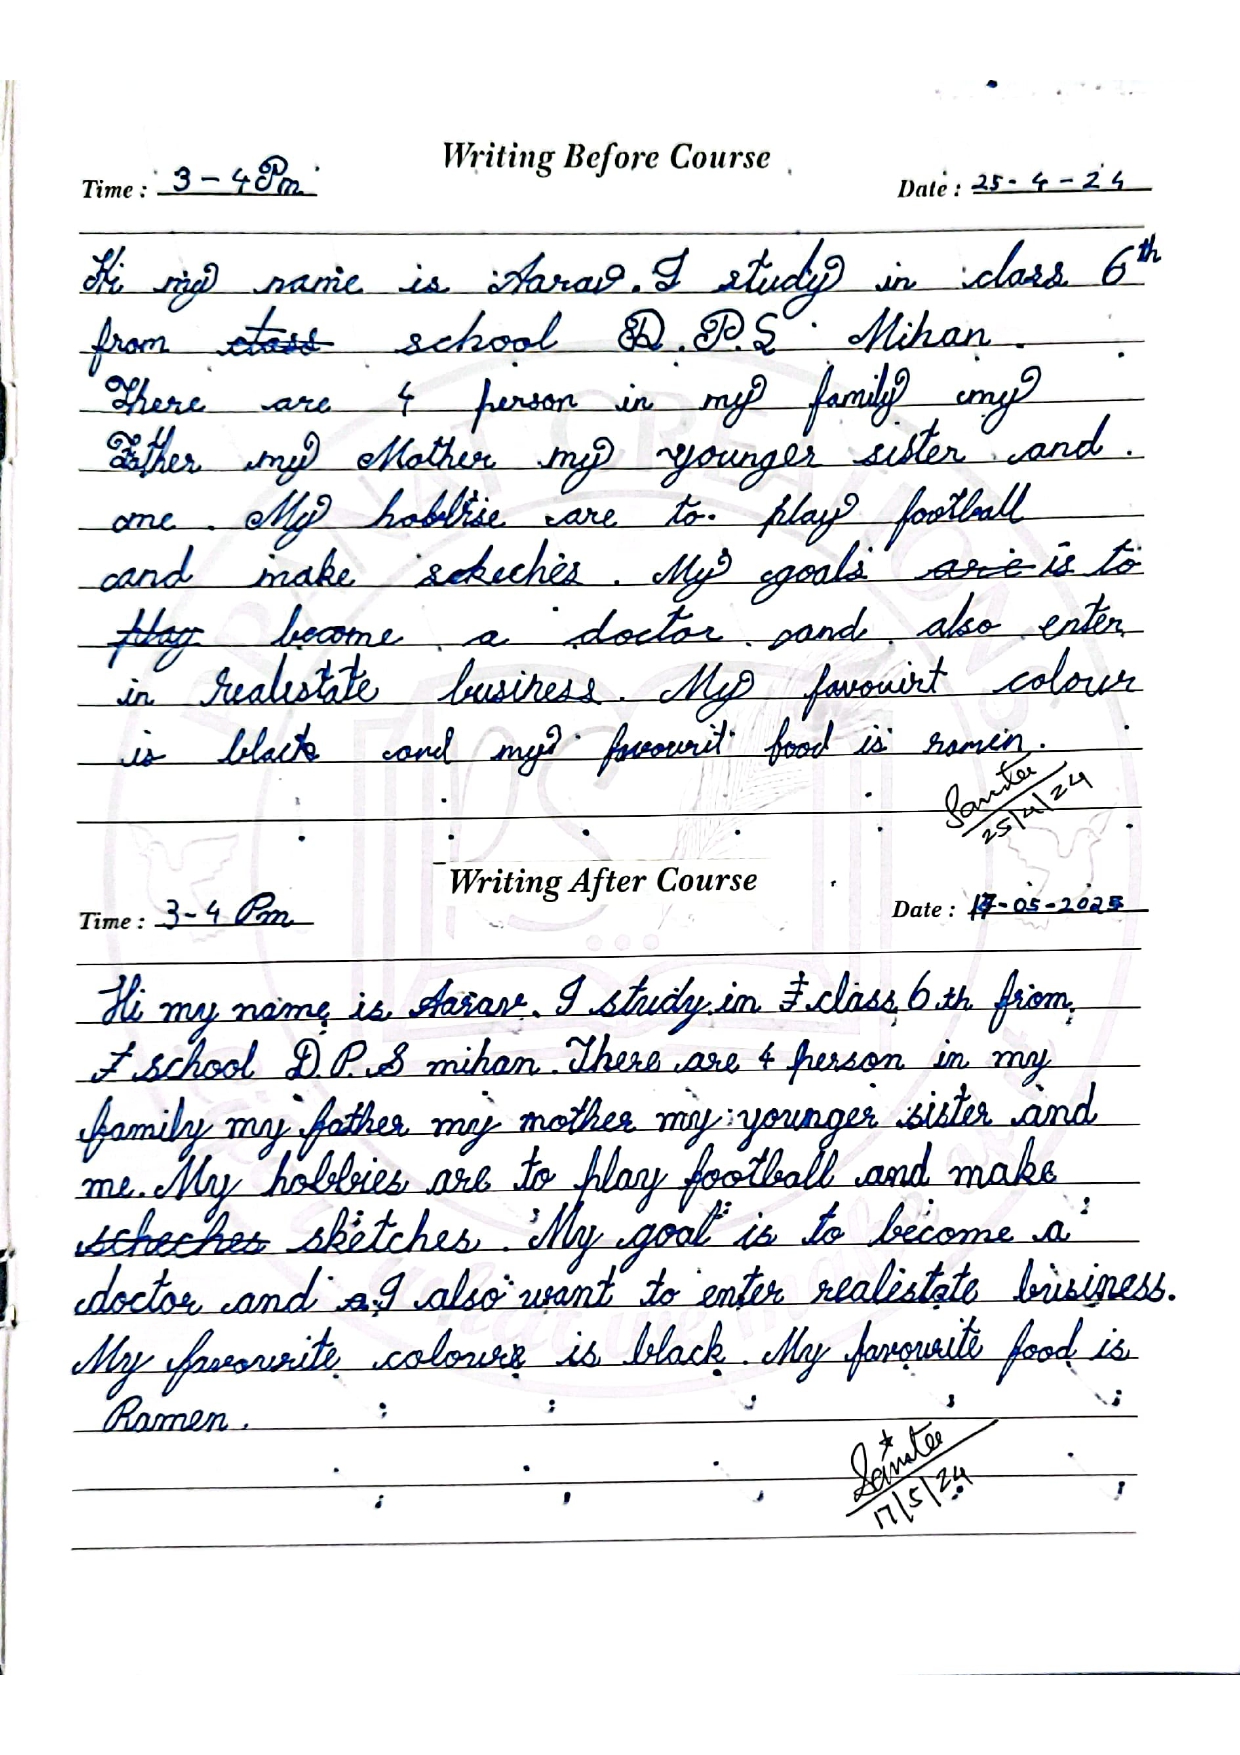 Writing Before Course
Time : 3 - 4 Pm
Date : 25 - 4 - 24
Hi my name is Aarav. I study in class 6th
from class school D.P.S Mihan.
There are 4 person in my family my
Father my Mother my younger sister and
me. My hobbise are to play football
and make sckeches. My goals are is to
play become a doctor and also enter
in realestate business. My favouirt colour
is black and my favourit food is ramen.
25/4/24
Writing After Course
Time : 3 - 4 Pm
Date : 17-05-2025
Hi my name is Aarav. I study in class 6th from
school D.P.S mihan. There are 4 person in my
family my father my mother my younger sister and
me. My hobbies are to play football and make
scheches sketches. My goal is to become a
doctor and I also want to enter realistate business.
My favourite colour is black. My favourite food is
Ramen.
17/5/24